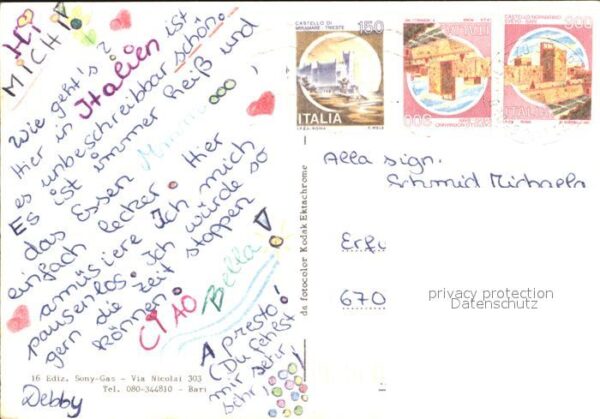 Hi
MICHI!
Wie geht's?
Hier in Italien ist
es unbeschreibbar schön.
Es ist immer heiß und
das Essen Mmmooo,
einfach lecker. Hier
amüsiere Ich mich
pausenlos. Ich würde so
gern die Zeit stoppen
können.
CIAO Bella!
A presto!
(Du fehlst
mir sehr!
Debby
16 Ediz. Sony-Gas - Via Nicolai 303
Tel. 080-344810 - Bari
da fotocolor Kodak Ektachrome
CASTELLO DI
MIRAMARE - TRIESTE
150
ITALIA
ITALIA
500
CASTELLO NORMANNO
500
ITALIA
Alla sign.
Schmid Michaela
Erfu
670
privacy protection
Datenschutz